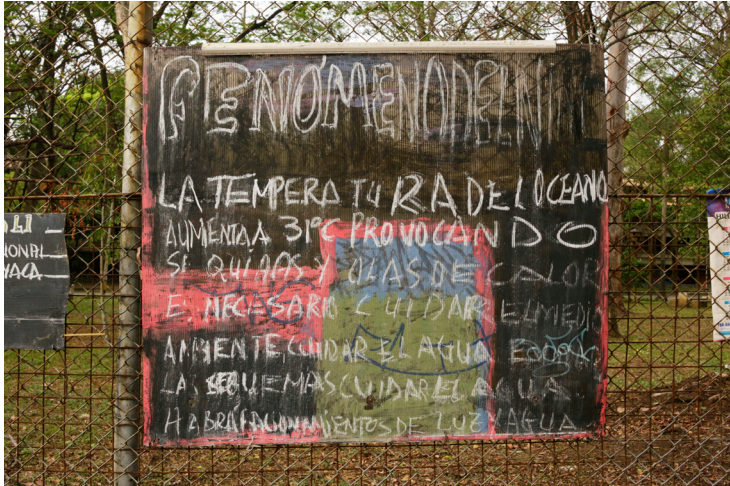 FENÓMENO DEL NIÑ
LA TEMPERATURA DEL OCEANO
AUMENTA A 31°C PROVOCANDO
SEQUIAS Y OLAS DE CALOR
E. NECESARIO CUIDAR EL MEDIO
AMBIENTE CUIDAR EL AGUA
LAS QUEMAS CUIDAR EL AGUA
HABRA RACIONAMIENTOS DE LUZ Y AGUA
ALI
IONAL
YACA